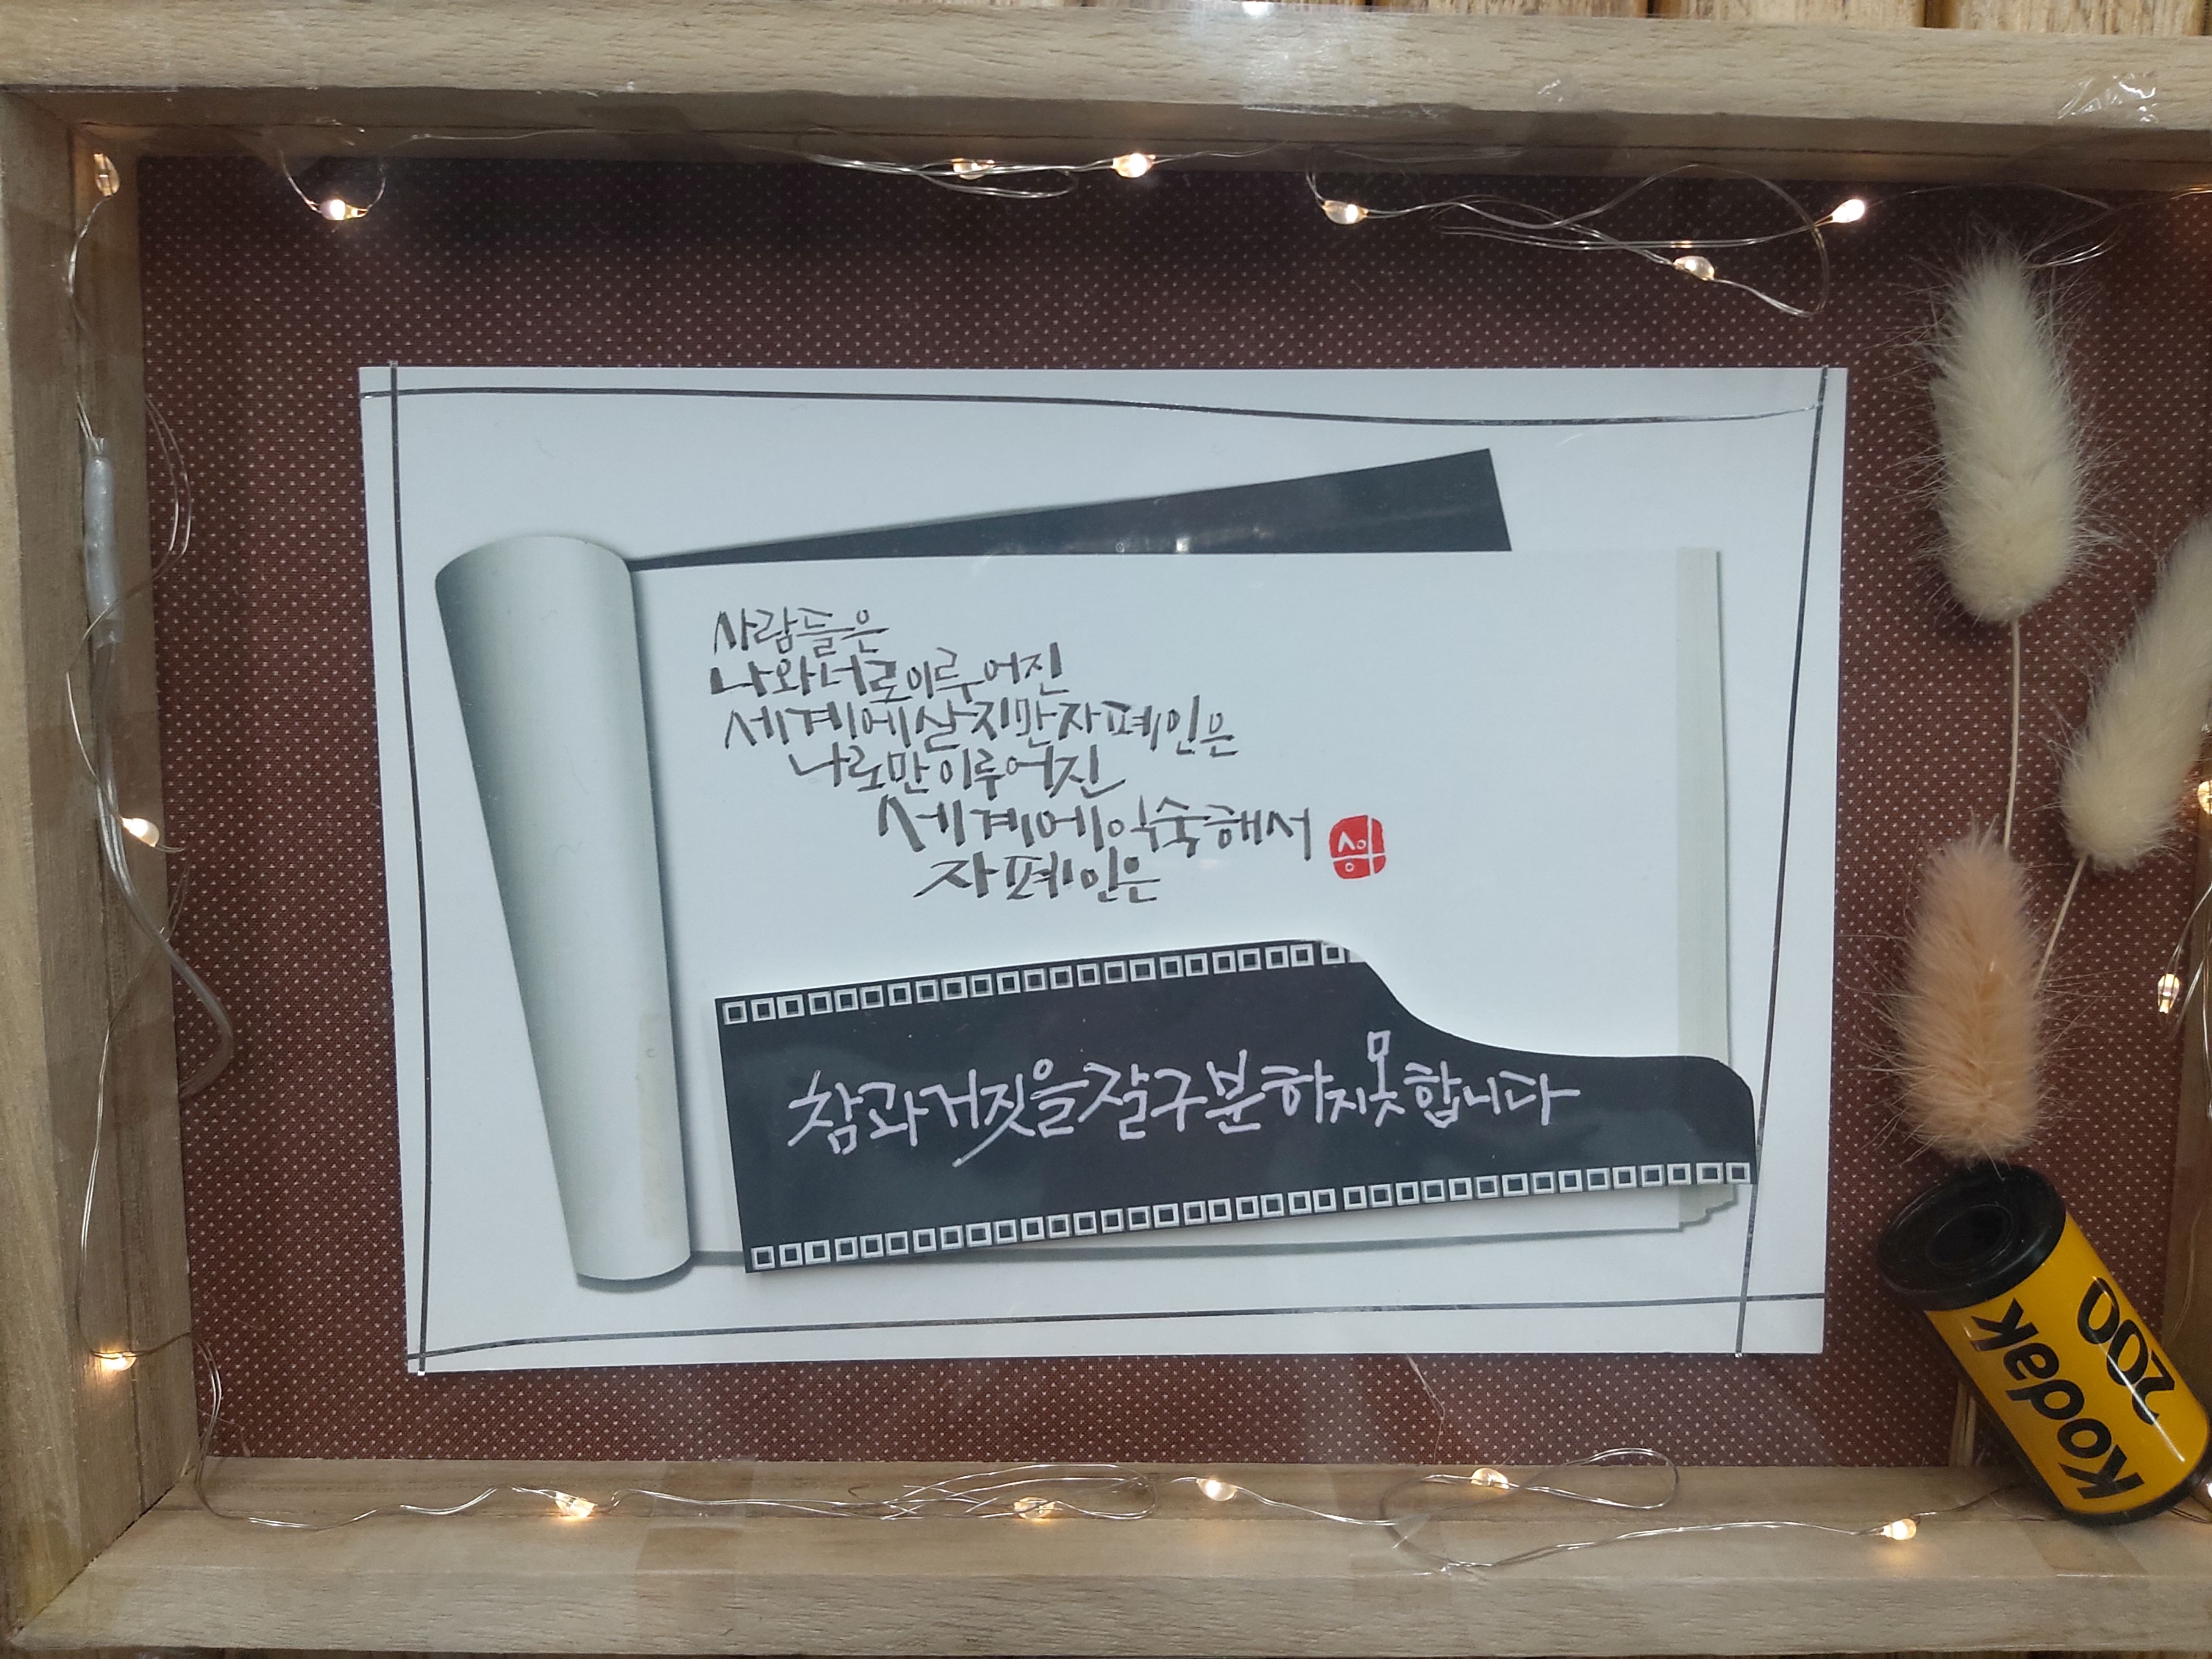 사람들은
나와너로이루어진
세계에살지만자폐인은
나로만이루어진
세계에익숙해서
자폐인은
참과거짓을잘구분하지못합니다
Kodak
200